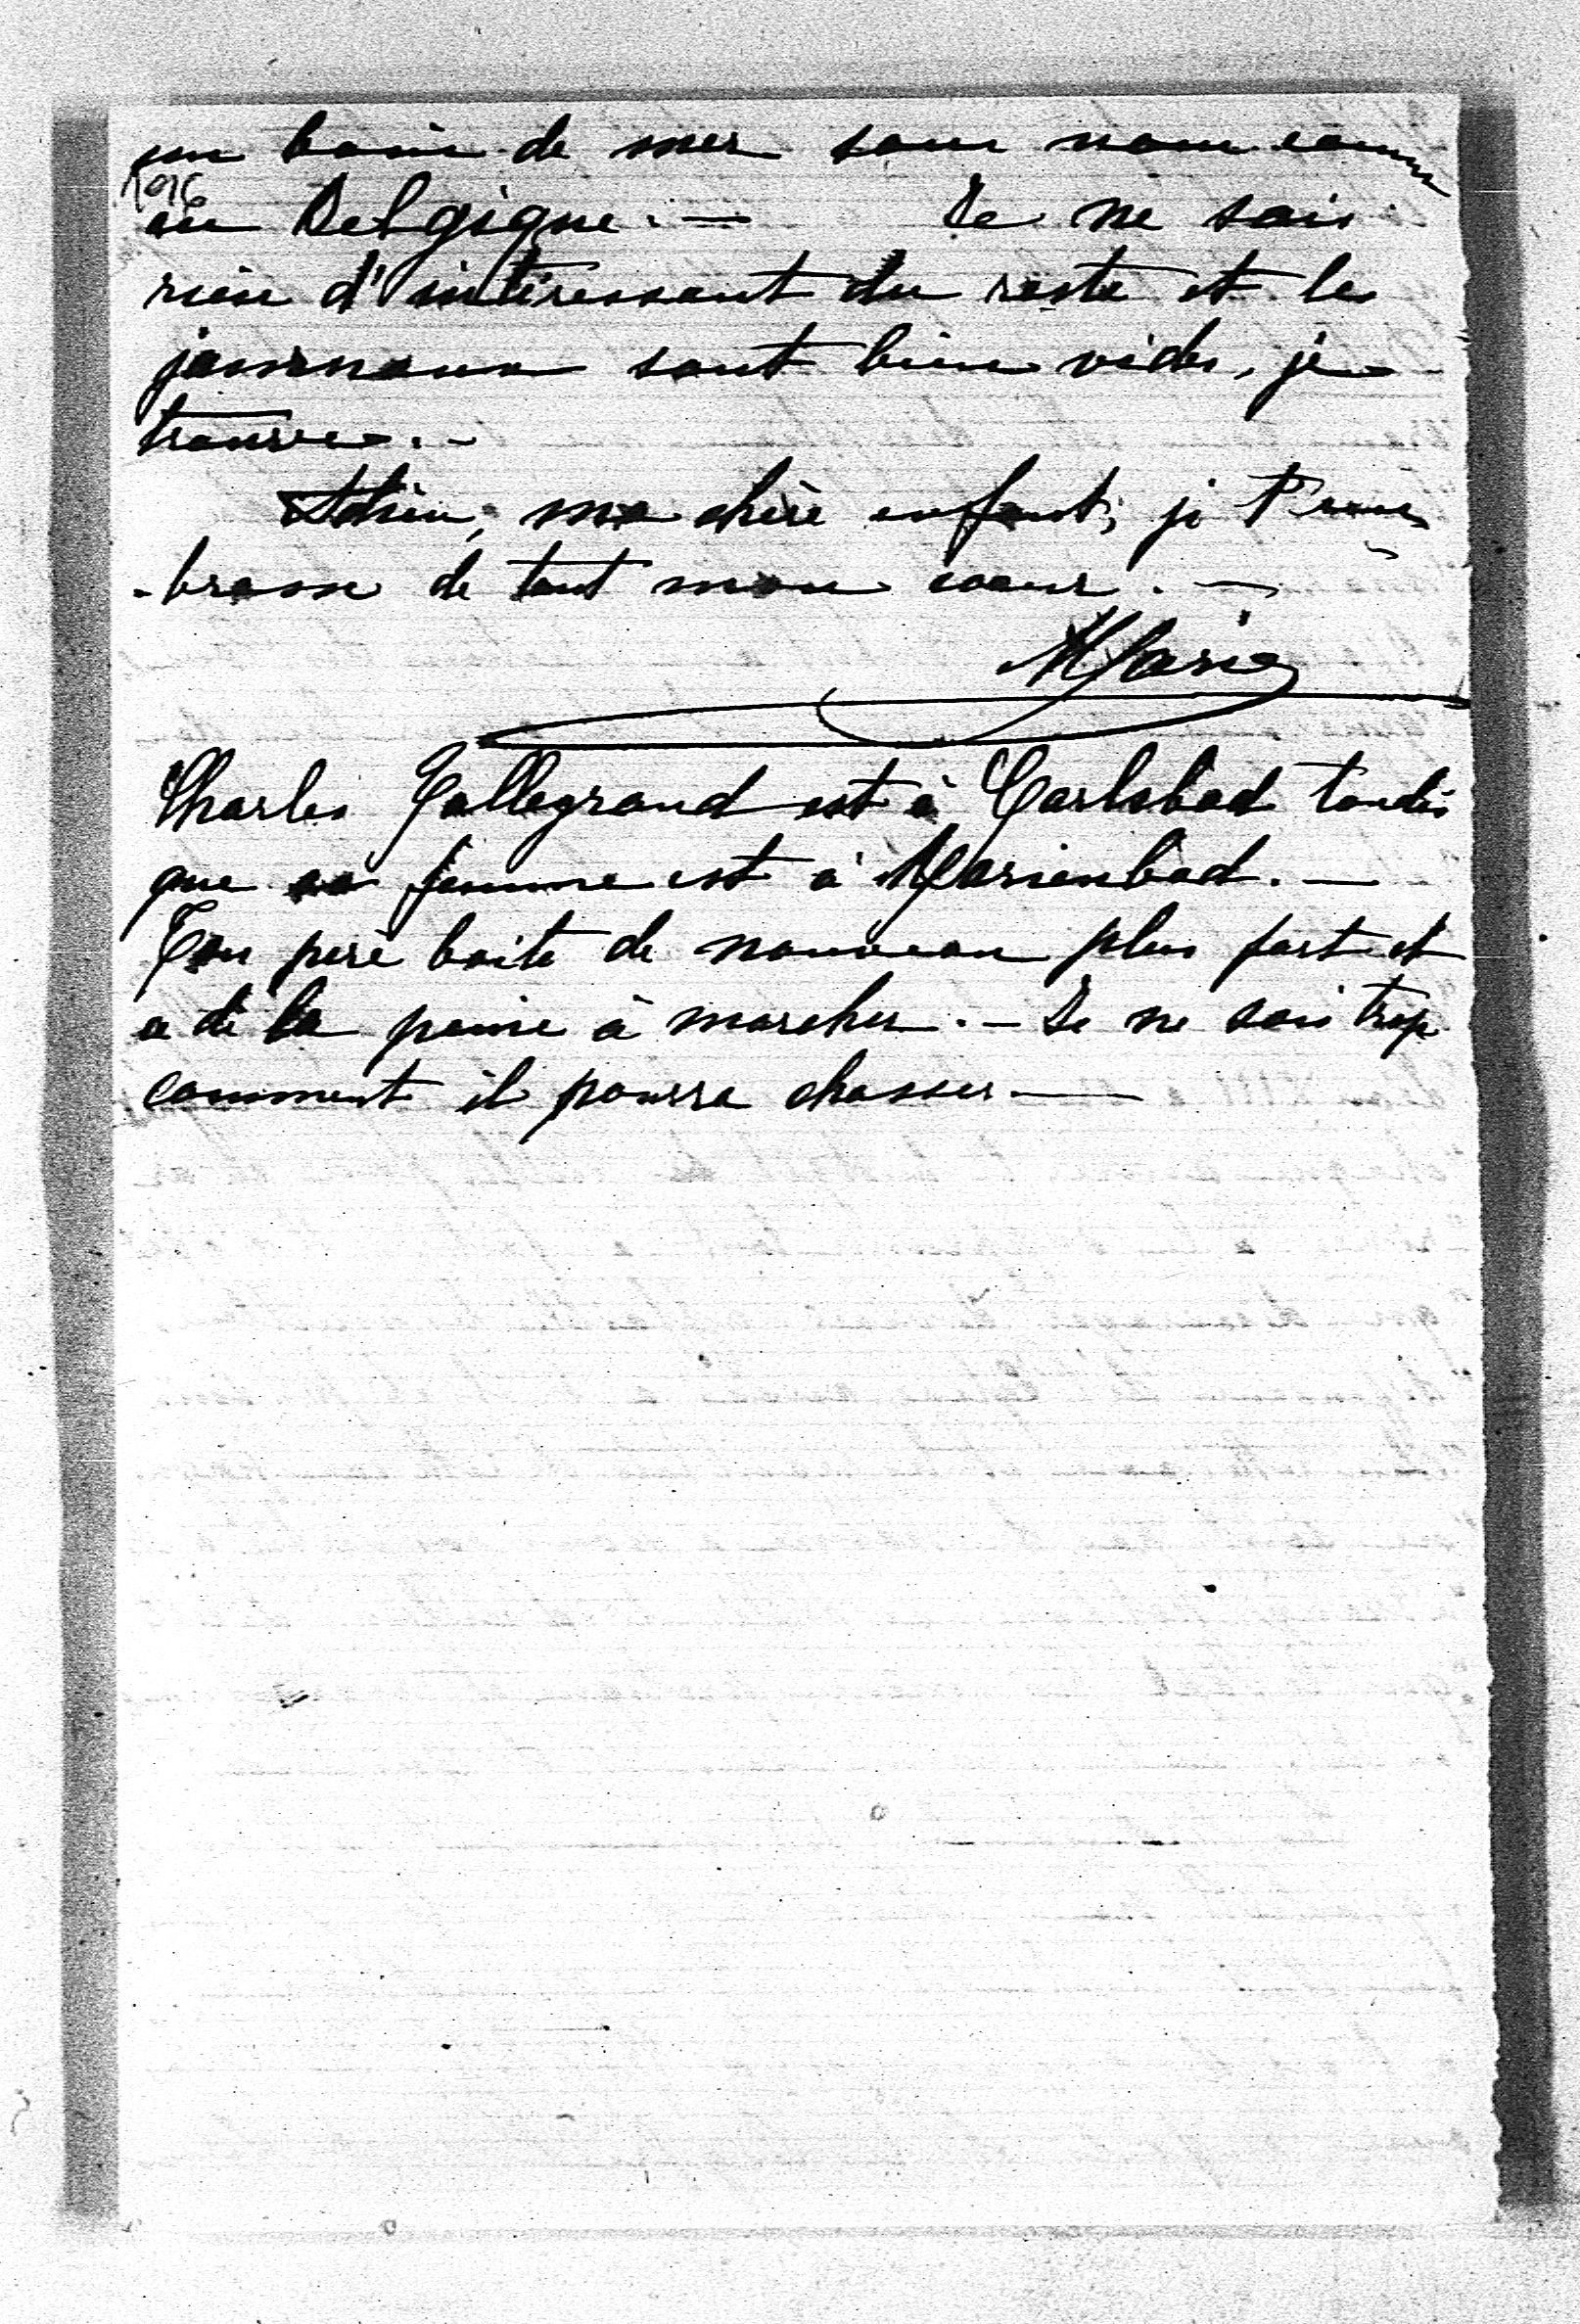 un bain de mer sous nom connu
1096
en Belgique. — Je ne sais
rien d'intéressant du reste et les
journaux sont bien vides, je
trouve. –
Adieu, ma chère enfant, je t'em
-brasse de tout mon coeur. —
Marie
Charles Gallegrand est à Carlsbad tandis
que sa femme est à Marienbad. —
Ton père boite de nouveau plus fort et
a de la peine à marcher. – Je ne sais trop
comment il pourra chasser —